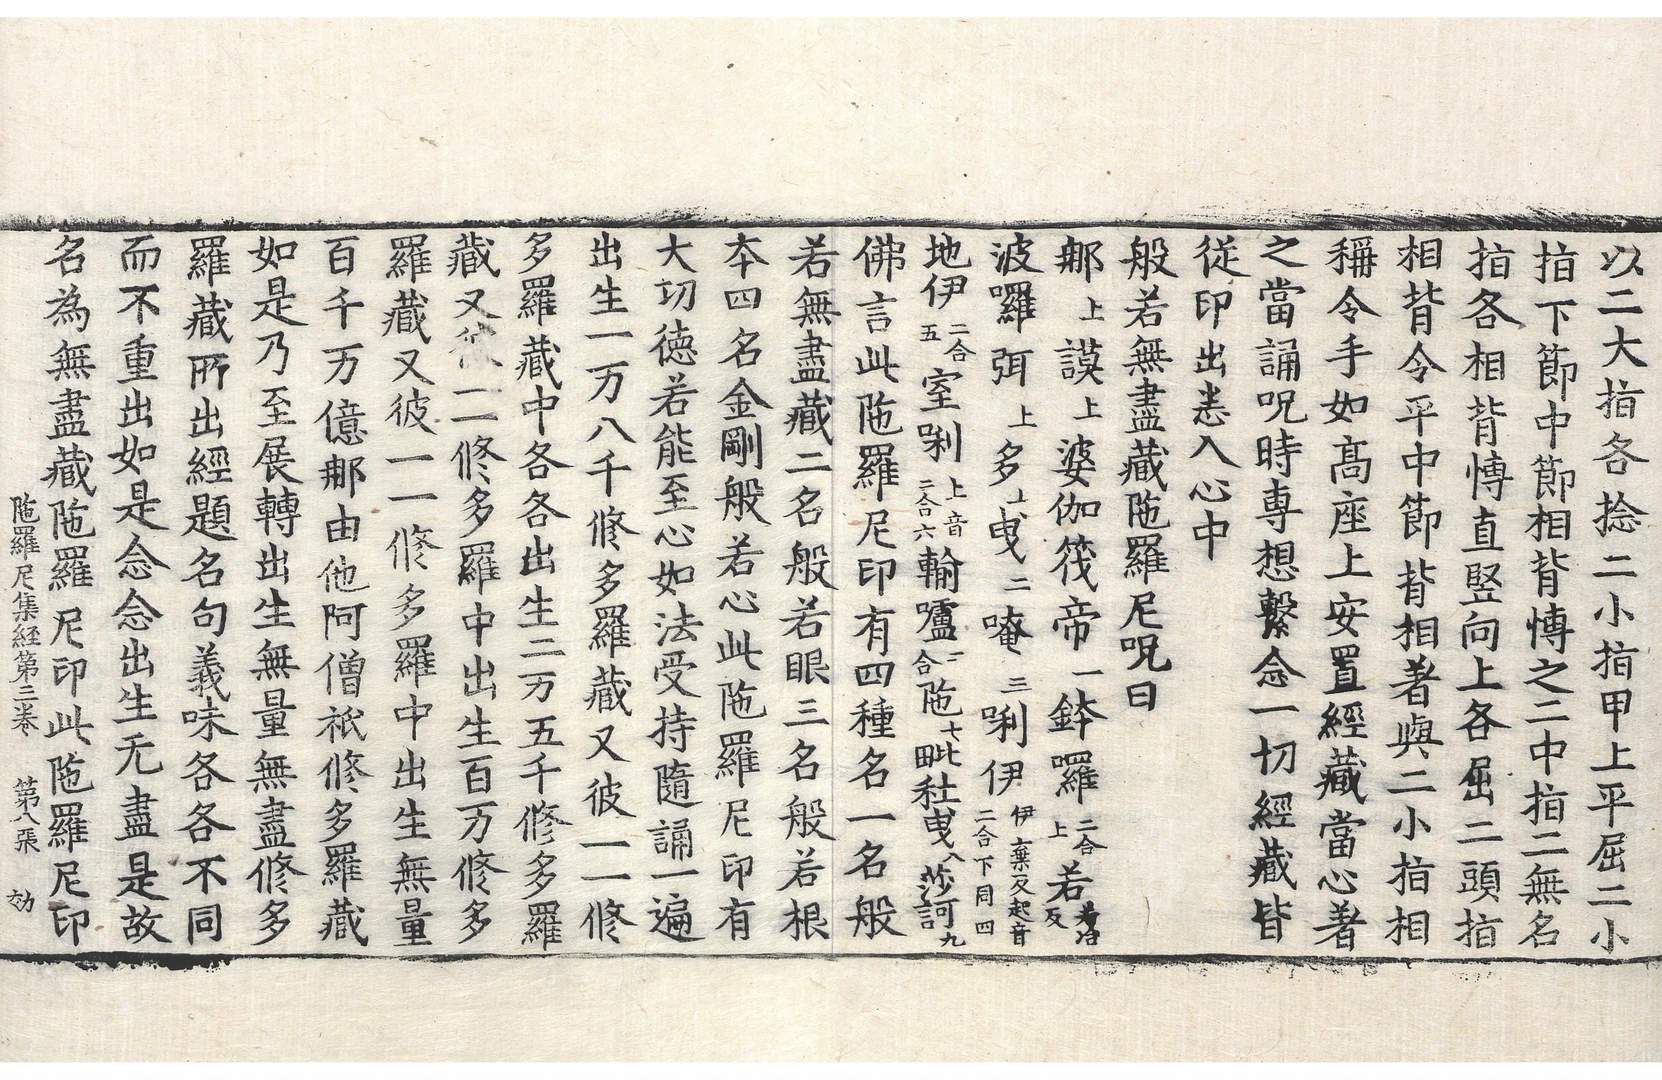 以二大指各捻二小指甲上平屈二小
指下節中節相背愽之二中指二無名
指各相背愽直竪向上各屈二頭指
相背令平中節背相著與二小指相
稱令手如髙座上安置經藏當心著
之當誦呪時專想繫念一切經藏皆
從印出悉入心中
般若無盡藏陁羅尼呪曰
那上謨上婆伽筏帝一鉢囉二合上若若冶反
波囉弭上多上曳二唵三唎伊伊棄反起音二合下同四
地伊二合五室唎上音二合六輸嚧二合陁七毗社曳八莎訶九
佛言此陁羅尼印有四種名一名般
若無盡藏二名般若眼三名般若根
夲四名金剛般若心此陁羅尼印有
大㓛德若能至心如法受持隨誦一遍
出生一万八千修多羅藏又彼一一修
多羅藏中各各出生二万五千修多羅
藏又彼一一修多羅中出生百万修多
羅藏又彼一一修多羅中出生無量
百千万億那由他阿僧祇修多羅藏
如是乃至展轉出生無量無盡修多
羅藏所出經題名句義味各各不同
而不重出如是念念出生无盡是故
名為無盡藏陁羅尼印此陁羅尼印
陁羅尼集經第三卷 第八張 効